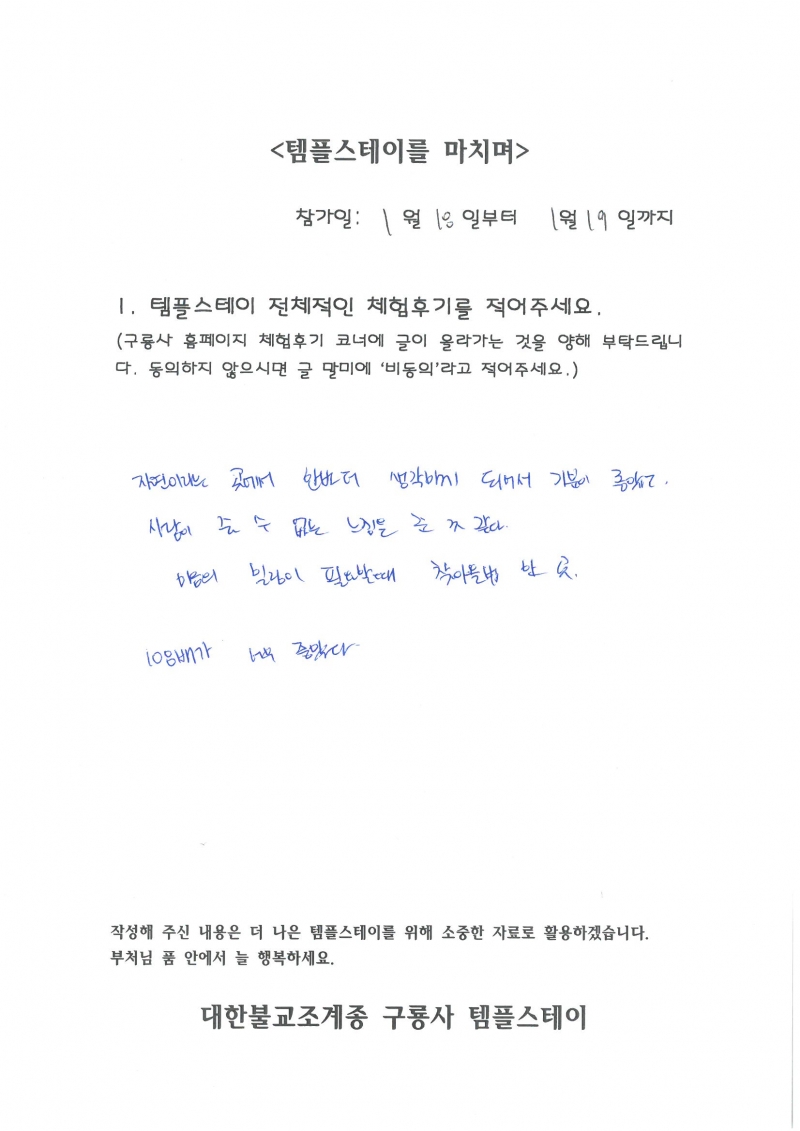 <템플스테이를 마치며>
참가일: 1 월 18 일부터 1월 19 일까지
1. 템플스테이 전체적인 체험후기를 적어주세요.
(구룡사 홈페이지 체험후기 코너에 글이 올라가는 것을 양해 부탁드립니
다. 동의하지 않으시면 글 말미에 '비동의'라고 적어주세요.)
자연이라는 곳에서 한번더 생각하게 되어서 기분이 좋았고.
사람이 줄 수 없는 느낌을 준 것 같다.
마음의 힐링이 필요할때 찾아올법 한 곳.
108배가 너무 좋았다
작성해 주신 내용은 더 나은 템플스테이를 위해 소중한 자료로 활용하겠습니다.
부처님 품 안에서 늘 행복하세요.
대한불교조계종 구룡사 템플스테이